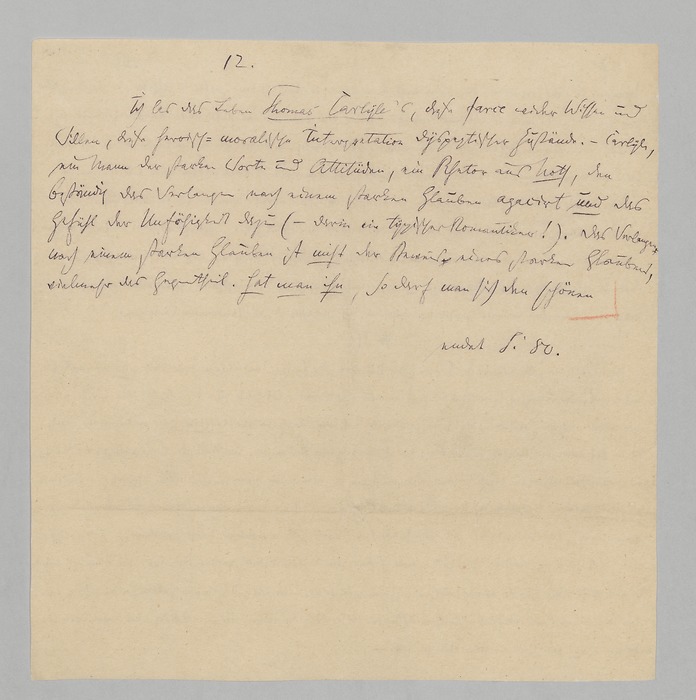 12.
Ich las das Leben Thomas Carlyle's, diese farce wider Wissen und
Willen, diese heroisch-moralische Interpretation dyspeptischer Zustände. – Carlyle,
ein Mann der starken Worte und Attitüden, ein Rhetor aus Noth, den
beständig das Verlangen nach einem starken Glauben agacirt und das
Gefühl der Unfähigkeit dazu (– darin ein typischer Romantiker!). Das Verlangen
nach einem starken Glauben ist nicht der Beweis eines starken Glaubens,
vielmehr das Gegentheil. Hat man ihn, so darf man sich den schönen
endet S. 80.